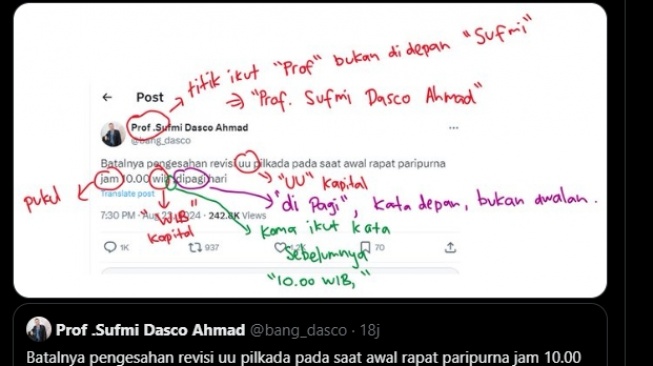 titik ikut "Prof" bukan di depan "Sufmi"
⇒ "Prof. Sufmi Dasco Ahmad"
← Post
Prof .Sufmi Dasco Ahmad
@bang_dasco
Batalnya pengesahan revisi uu pilkada pada saat awal rapat paripurna
jam 10.00 wib ,dipagi hari
Translate post
7:30 PM · Aug 2 2024 · 242. K Views
1K 937 70
pukul
"WIB"
Kapital
"UU" Kapital
"di Pagi", Kata depan, bukan awalan.
Koma ikut kata
Sebelumnya
"10.00 WIB,"
Prof .Sufmi Dasco Ahmad @bang_dasco · 18j
Batalnya pengesahan revisi uu pilkada pada saat awal rapat paripurna jam 10.00